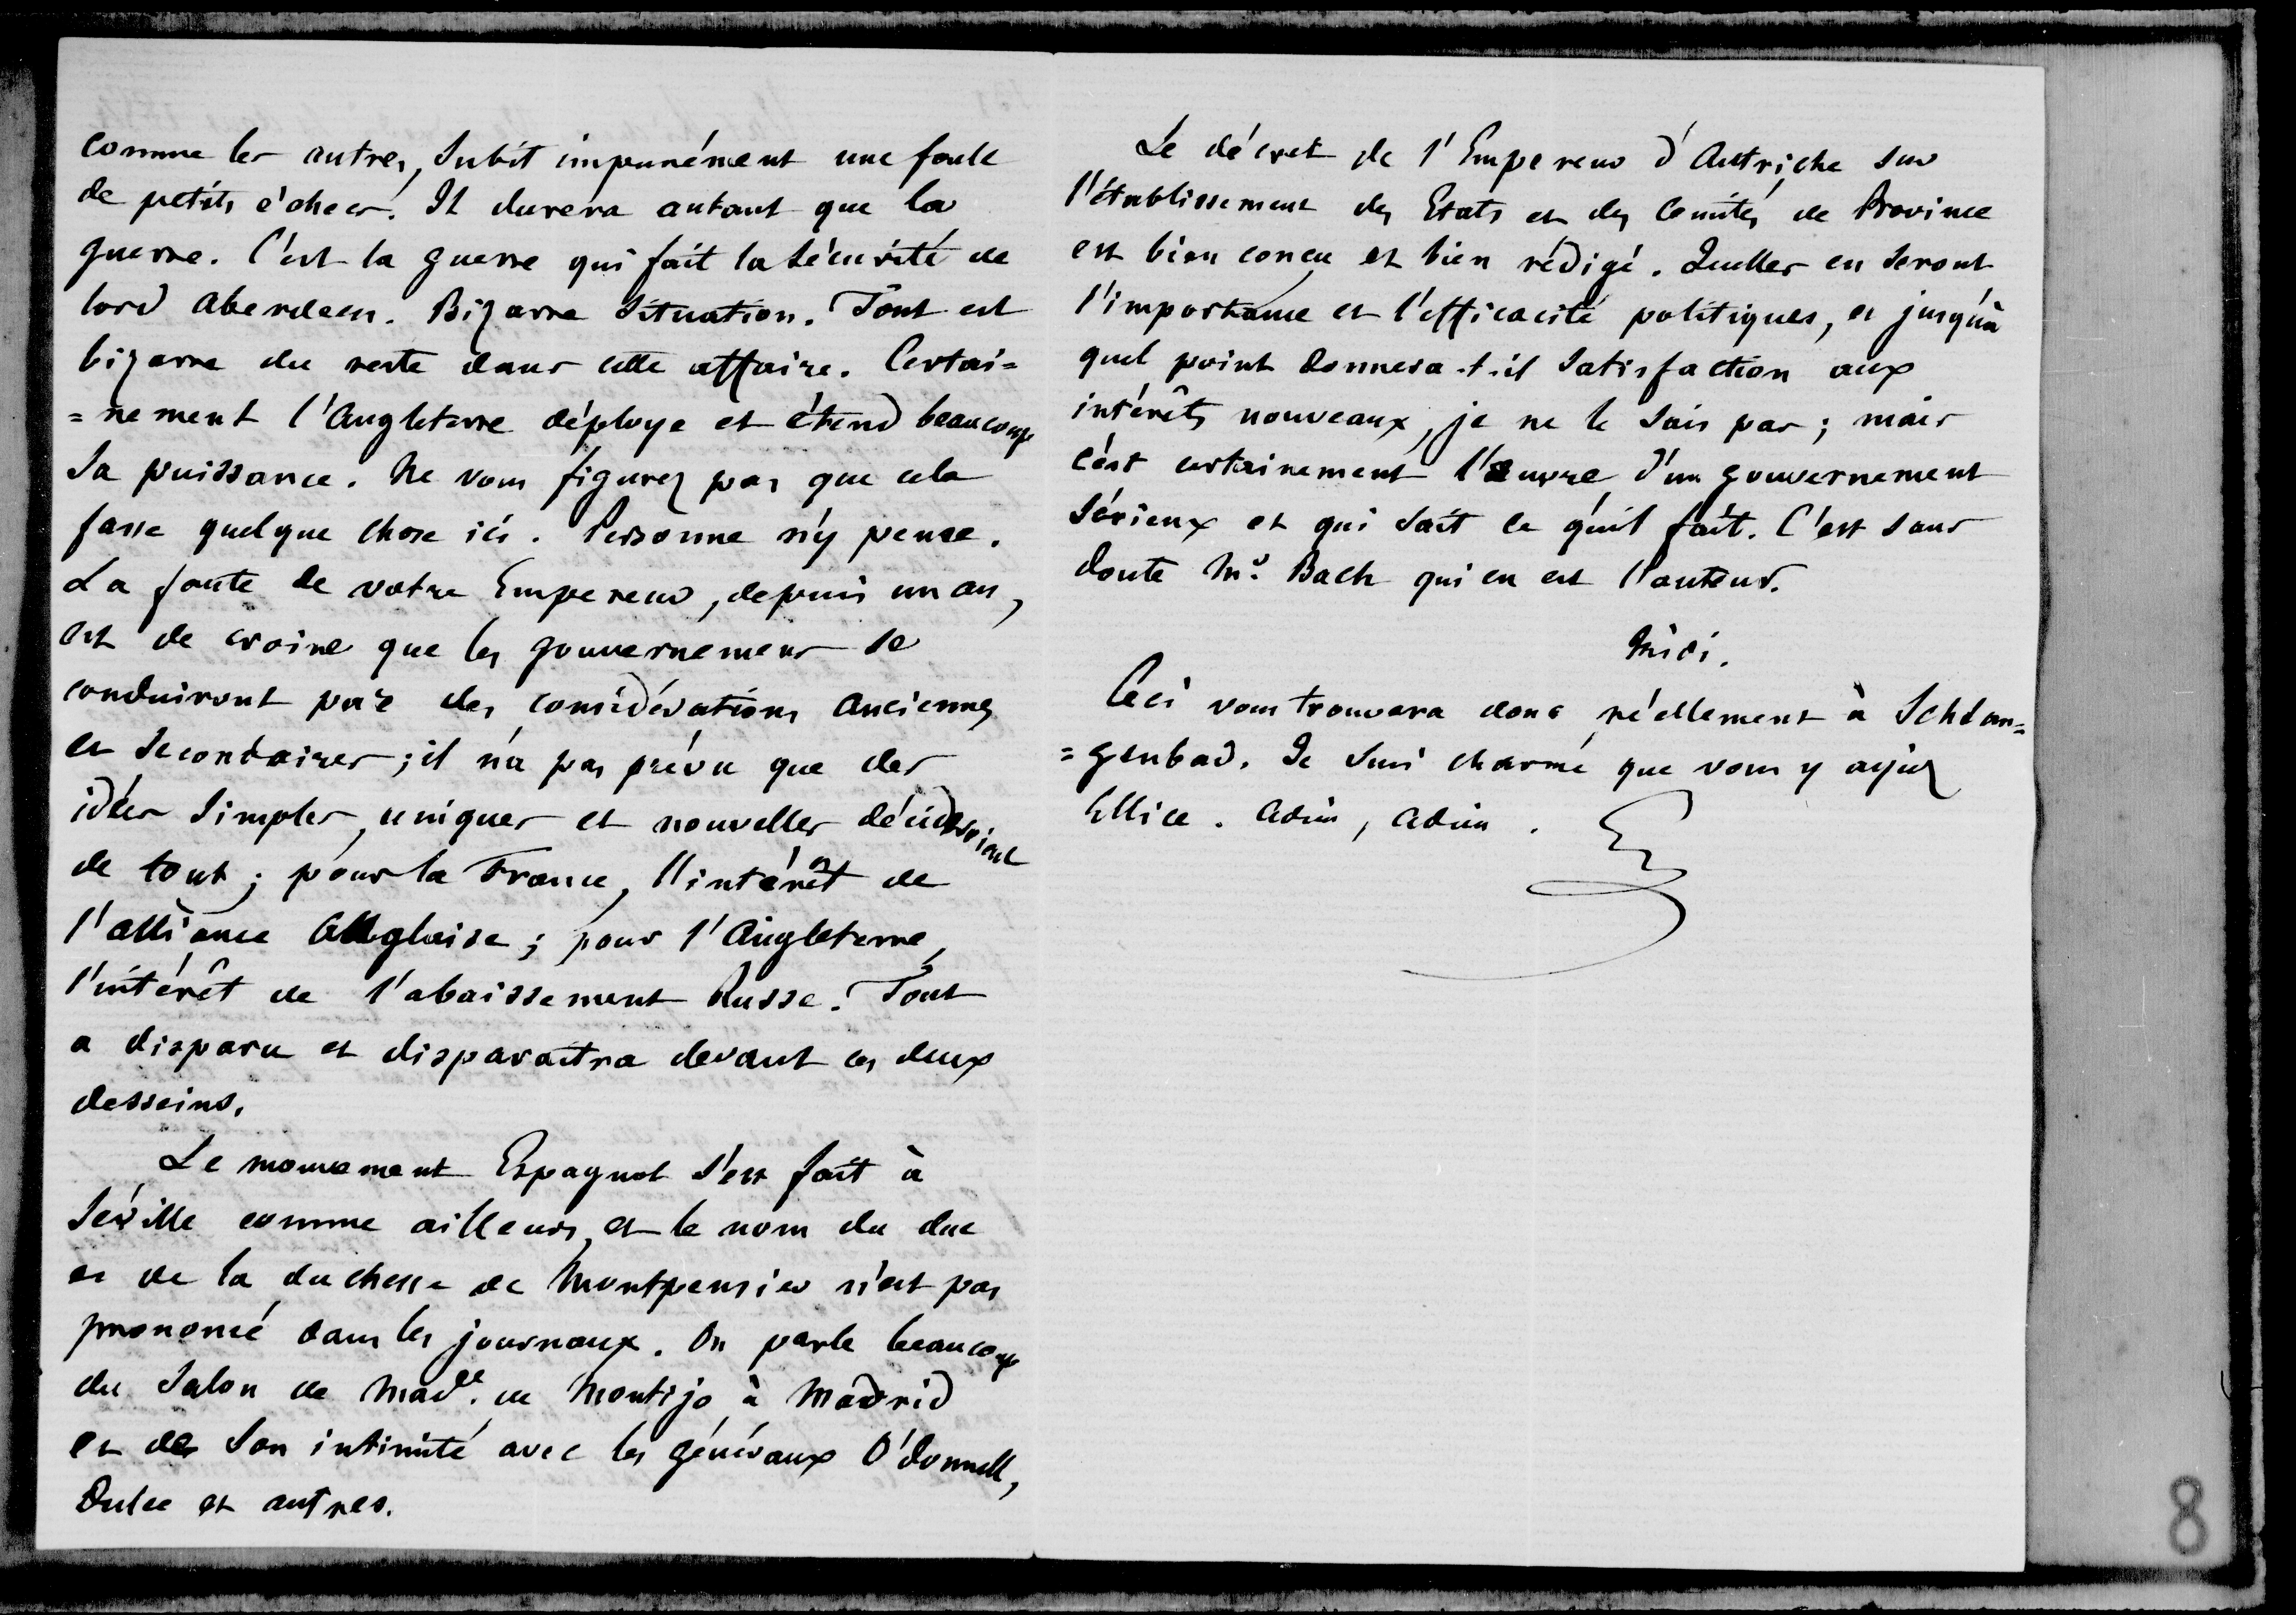 comme les autres, subit impunément une foule
de petits échecs. Il durera autant que la
guerre. C'est la guerre qui fait la sécurité de
lord Aberdeen. Bizarre situation. Tout est
bizarre du reste dans cette affaire. Certai=
=nement l'Angleterre déploye et étend beaucoup
sa puissance. Ne vous figurez pas que cela
fasse quelque chose ici. Personne n'y pense.
La faute de votre Empereur, depuis un an,
est de croire que les gouvernemens se
conduiront par des considérations anciennes
et secondaires ; il n'a pas prévu que des
idées simples, uniques et nouvelles décideroient
de tout ; pour la France, l'intérêt de
l'alliance Anglaise ; pour l'Angleterre,
l'intérêt de l'abaissement Russe. Tout
a disparu et disparaîtra devant ces deux
desseins.
Le mouvement Espagnol s'est fait à
Séville comme ailleurs, et le nom du duc
et de la duchesse de Montpensier n'est pas
prononcé dans les journaux. On parle beaucoup
du salon de Made. de Montijo à Madrid
et de son intimité avec les généraux O'donnell,
Dulce et autres.
Le décret de l'Empereur d'Autriche sur
l'établissement des Etats et des Comités de Province
est bien concu et bien rédigé. Quelles en seront
l'importance et l'efficacité politiques, et jusqu'à
quel point donnera-t-il satisfaction aux
intérêts nouveaux, je ne le sais pas ; mais
c'est certainement l'œuvre d'un gouvernement
sérieux et qui sait ce qu'il fait. C'est sans
doute Mr. Bach qui en est l'auteur.
Midi.
Ceci vous trouvera donc réellement à Schlan=
=genbad. Je suis charmé que vous y ayiez
Ellice. Adieu, Adieu.
8